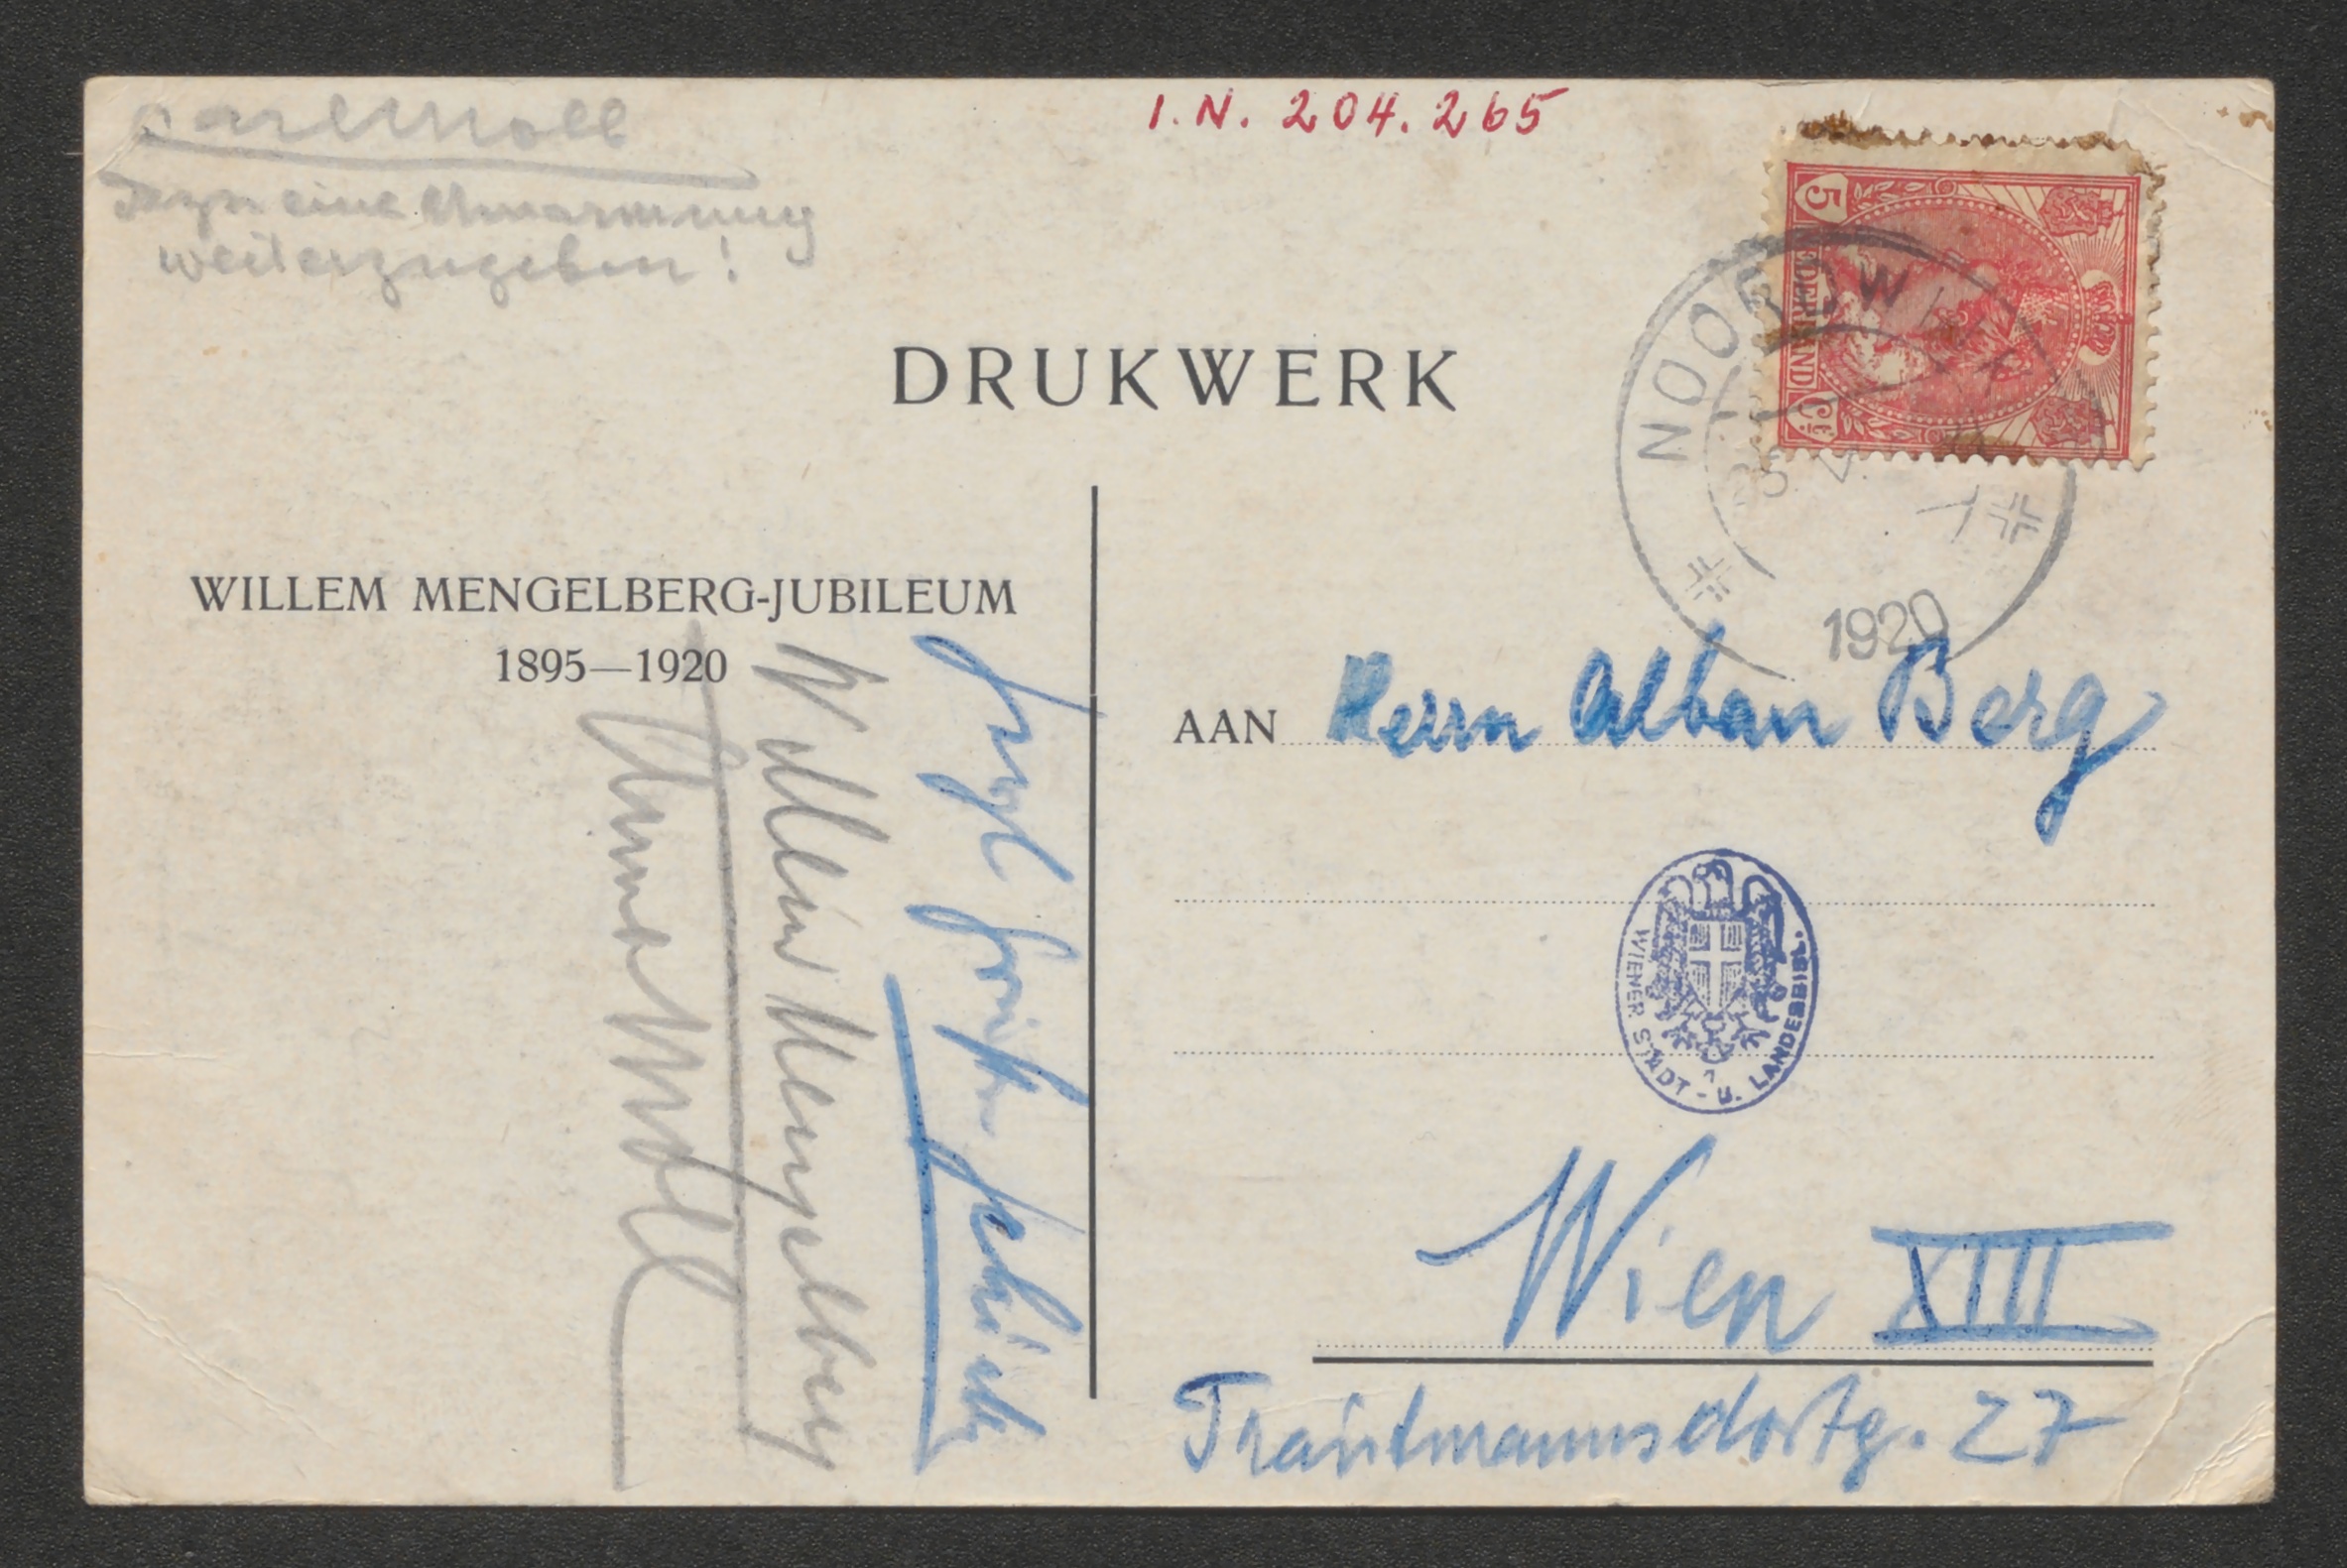 Carl Moll
Dazu eine Umarmung
weiterzugeben!
I.N. 204.265
5 NEDERLAND Ct
NOORDWIJK
1920
DRUKWERK
WILLEM MENGELBERG-JUBILEUM
1895—1920
Willem Mengelberg
Anna Moll
AAN Herrn Alban Berg
WIENER STADT- U. LANDESBIBL.
Wien XIII
Trauttmannsdorfg. 27